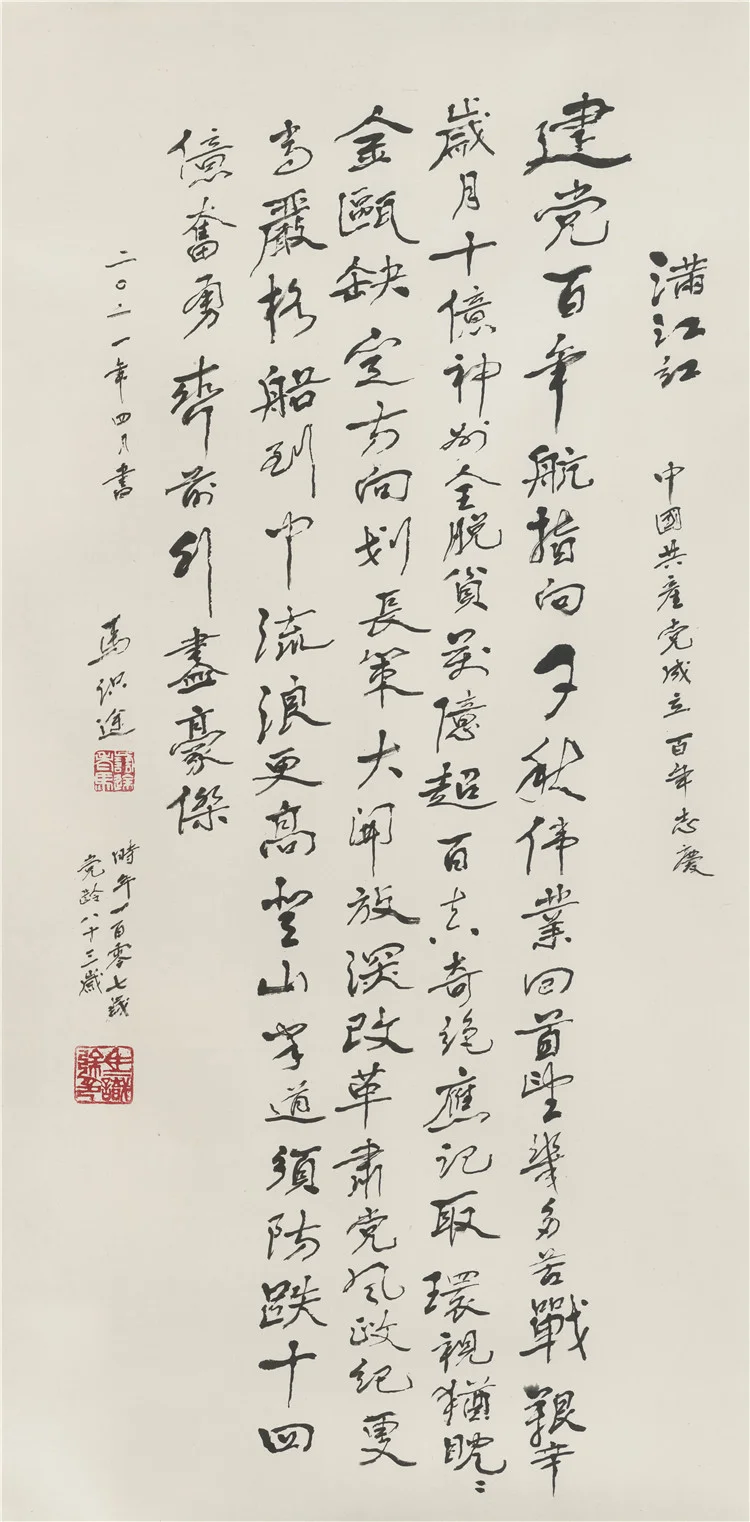 滿江紅 中國共產党成立百年志慶
建党百年航指向千秋伟業回首望幾多苦戰艱辛
歲月十億神州全脫貧萬億超百真奇絶應記取環視猶眈〻
金甌缺定方向划長策大開放深改革肅党風政紀更
當嚴格船到中流浪更高登山半道須防跌十四
億奮勇齊前列盡豪傑
二〇二一年四月書 馬识途
識途老馬
時年一百零七歲
党龄八十三歲